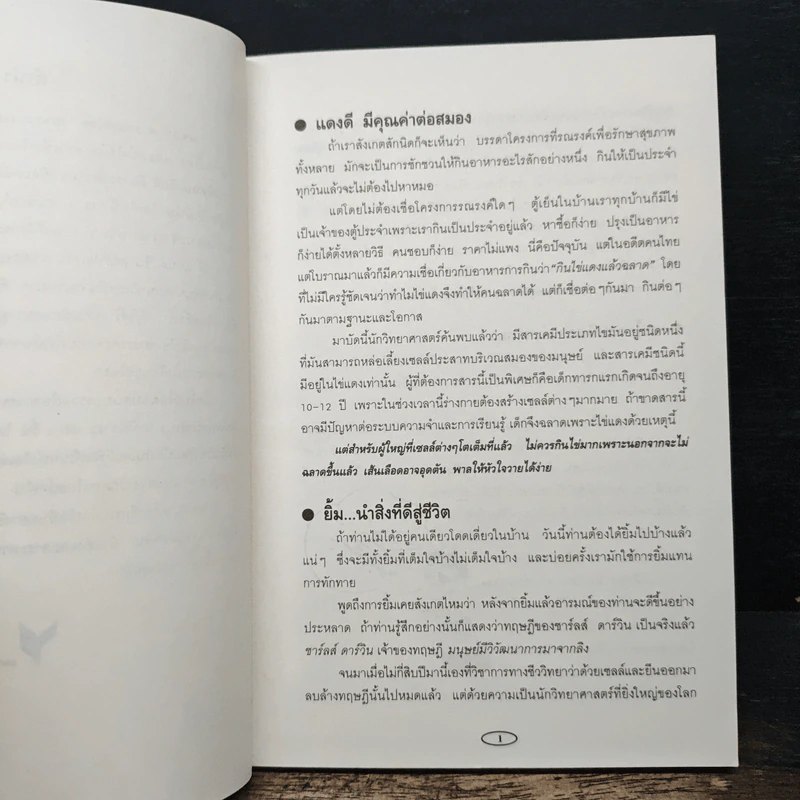 ● แดงดี มีคุณค่าต่อสมอง
ถ้าเราสังเกตสักนิดก็จะเห็นว่า บรรดาโครงการที่รณรงค์เพื่อรักษาสุขภาพ
ทั้งหลาย มักจะเป็นการชักชวนให้กินอาหารอะไรสักอย่างหนึ่ง กินให้เป็นประจำ
ทุกวันแล้วจะไม่ต้องไปหาหมอ
แต่โดยไม่ต้องเชื่อโครงการรณรงค์ใดๆ ตู้เย็นในบ้านเราทุกบ้านก็มีไข่
เป็นเจ้าของตู้ประจำเพราะเรากินเป็นประจำอยู่แล้ว หาซื้อก็ง่าย ปรุงเป็นอาหาร
ก็ง่ายได้ตั้งหลายวิธี คนชอบก็ง่าย ราคาไม่แพง นี่คือปัจจุบัน แต่ในอดีตคนไทย
แต่โบราณมาแล้วก็มีความเชื่อเกี่ยวกับอาหารการกินว่า“กินไข่แดงแล้วฉลาด” โดย
ที่ไม่มีใครรู้ชัดเจนว่าทำไมไข่แดงจึงทำให้คนฉลาดได้ แต่ก็เชื่อต่อๆกันมา กินต่อๆ
กันมาตามฐานะและโอกาส
มาบัดนี้นักวิทยาศาสตร์ค้นพบแล้วว่า มีสารเคมีประเภทไขมันอยู่ชนิดหนึ่ง
ที่มันสามารถหล่อเลี้ยงเซลล์ประสาทบริเวณสมองของมนุษย์ และสารเคมีชนิดนี้
มีอยู่ในไข่แดงเท่านั้น ผู้ที่ต้องการสารนี้เป็นพิเศษก็คือเด็กทารกแรกเกิดจนถึงอายุ
10-12 ปี เพราะในช่วงเวลานี้ร่างกายต้องสร้างเซลล์ต่างๆมากมาย ถ้าขาดสารนี้
อาจมีปัญหาต่อระบบความจำและการเรียนรู้ เด็กจึงฉลาดเพราะไข่แดงด้วยเหตุนี้
แต่สำหรับผู้ใหญ่ที่เซลล์ต่างๆโตเต็มที่แล้ว ไม่ควรกินไข่มากเพราะนอกจากจะไม่
ฉลาดขึ้นแล้ว เส้นเลือดอาจอุดตัน พาลให้หัวใจวายได้ง่าย
● ยิ้ม...นำสิ่งที่ดีสู่ชีวิต
ถ้าท่านไม่ได้อยู่คนเดียวโดดเดี่ยวในบ้าน วันนี้ท่านต้องได้ยิ้มไปบ้างแล้ว
แน่ๆ ซึ่งจะมีทั้งยิ้มที่เต็มใจบ้างไม่เต็มใจบ้าง และบ่อยครั้งเรามักใช้การยิ้มแทน
การทักทาย
พูดถึงการยิ้มเคยสังเกตไหมว่า หลังจากยิ้มแล้วอารมณ์ของท่านจะดีขึ้นอย่าง
ประหลาด ถ้าท่านรู้สึกอย่างนั้นก็แสดงว่าทฤษฎีของชาร์ลส์ ดาร์วิน เป็นจริงแล้ว
ชาร์ลส์ ดาร์วิน เจ้าของทฤษฎี มนุษย์มีวิวัฒนาการมาจากลิง
จนมาเมื่อไม่กี่สิบปีมานี้เองที่วิชาการทางชีววิทยาว่าด้วยเซลล์และยีนออกมา
ลบล้างทฤษฎีนั้นไปหมดแล้ว แต่ด้วยความเป็นนักวิทยาศาสตร์ที่ยิ่งใหญ่ของโลก
1